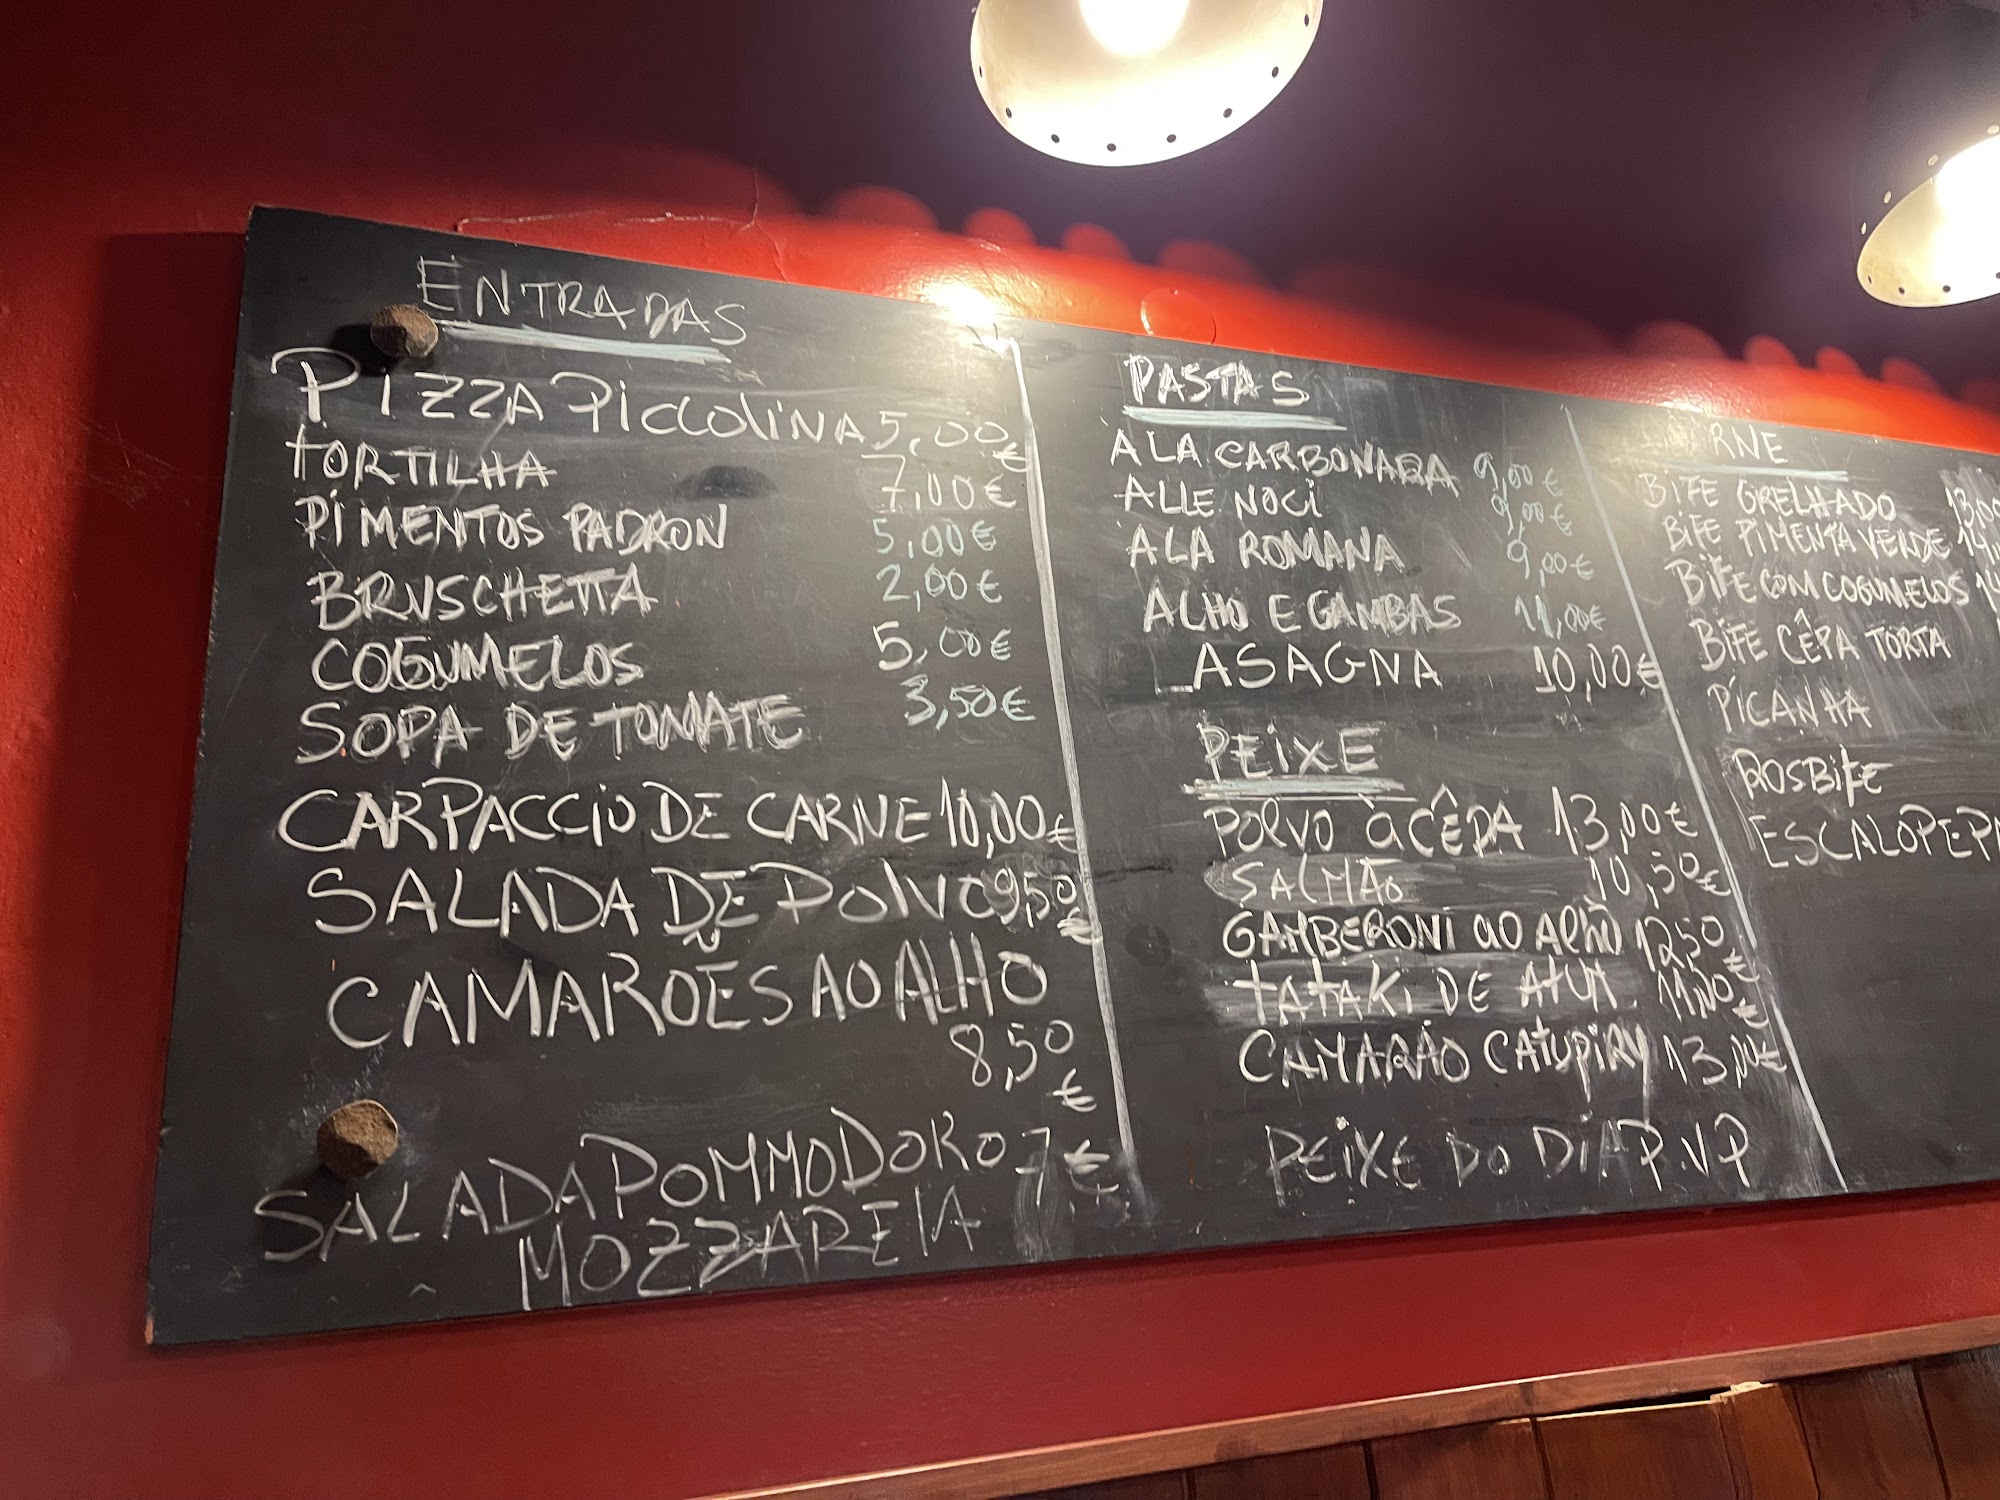 ENTRADAS
PIZZA PICCOLINA 5,00€
TORTILHA 7,00€
PIMENTOS PADRON 5,00€
BRUSCHETTA 2,00€
COGUMELOS 5,00€
SOPA DE TOMATE 3,50€
CARPACCIO DE CARNE 10,00€
SALADA DE POLVO 9,50€
CAMARÕES AO ALHO
8,50€
SALADA POMMODORO 7€
MOZZARELA
PASTAS
A LA CARBONARA 9,00€
ALLE NOCI 9,00€
A LA ROMANA 9,00€
ALHO E GAMBAS 11,00€
LASAGNA 10,00€
PEIXE
POLVO À CÊPA 13,00€
SALMÃO 10,50€
GAMBERONI AO ALHO 12,50€
TATAKI DE ATUM 11,00€
CAMARÃO CATUPIRY 13,00€
PEIXE DO DIA P.V.P
RNE
BIFE GRELHADO 13,00
BIFE PIMENTA VERDE 14,
BIFE COM COGUMELOS 14
BIFE CÊPA TORTA
PICANHA
ROSBIFE
ESCALOPE